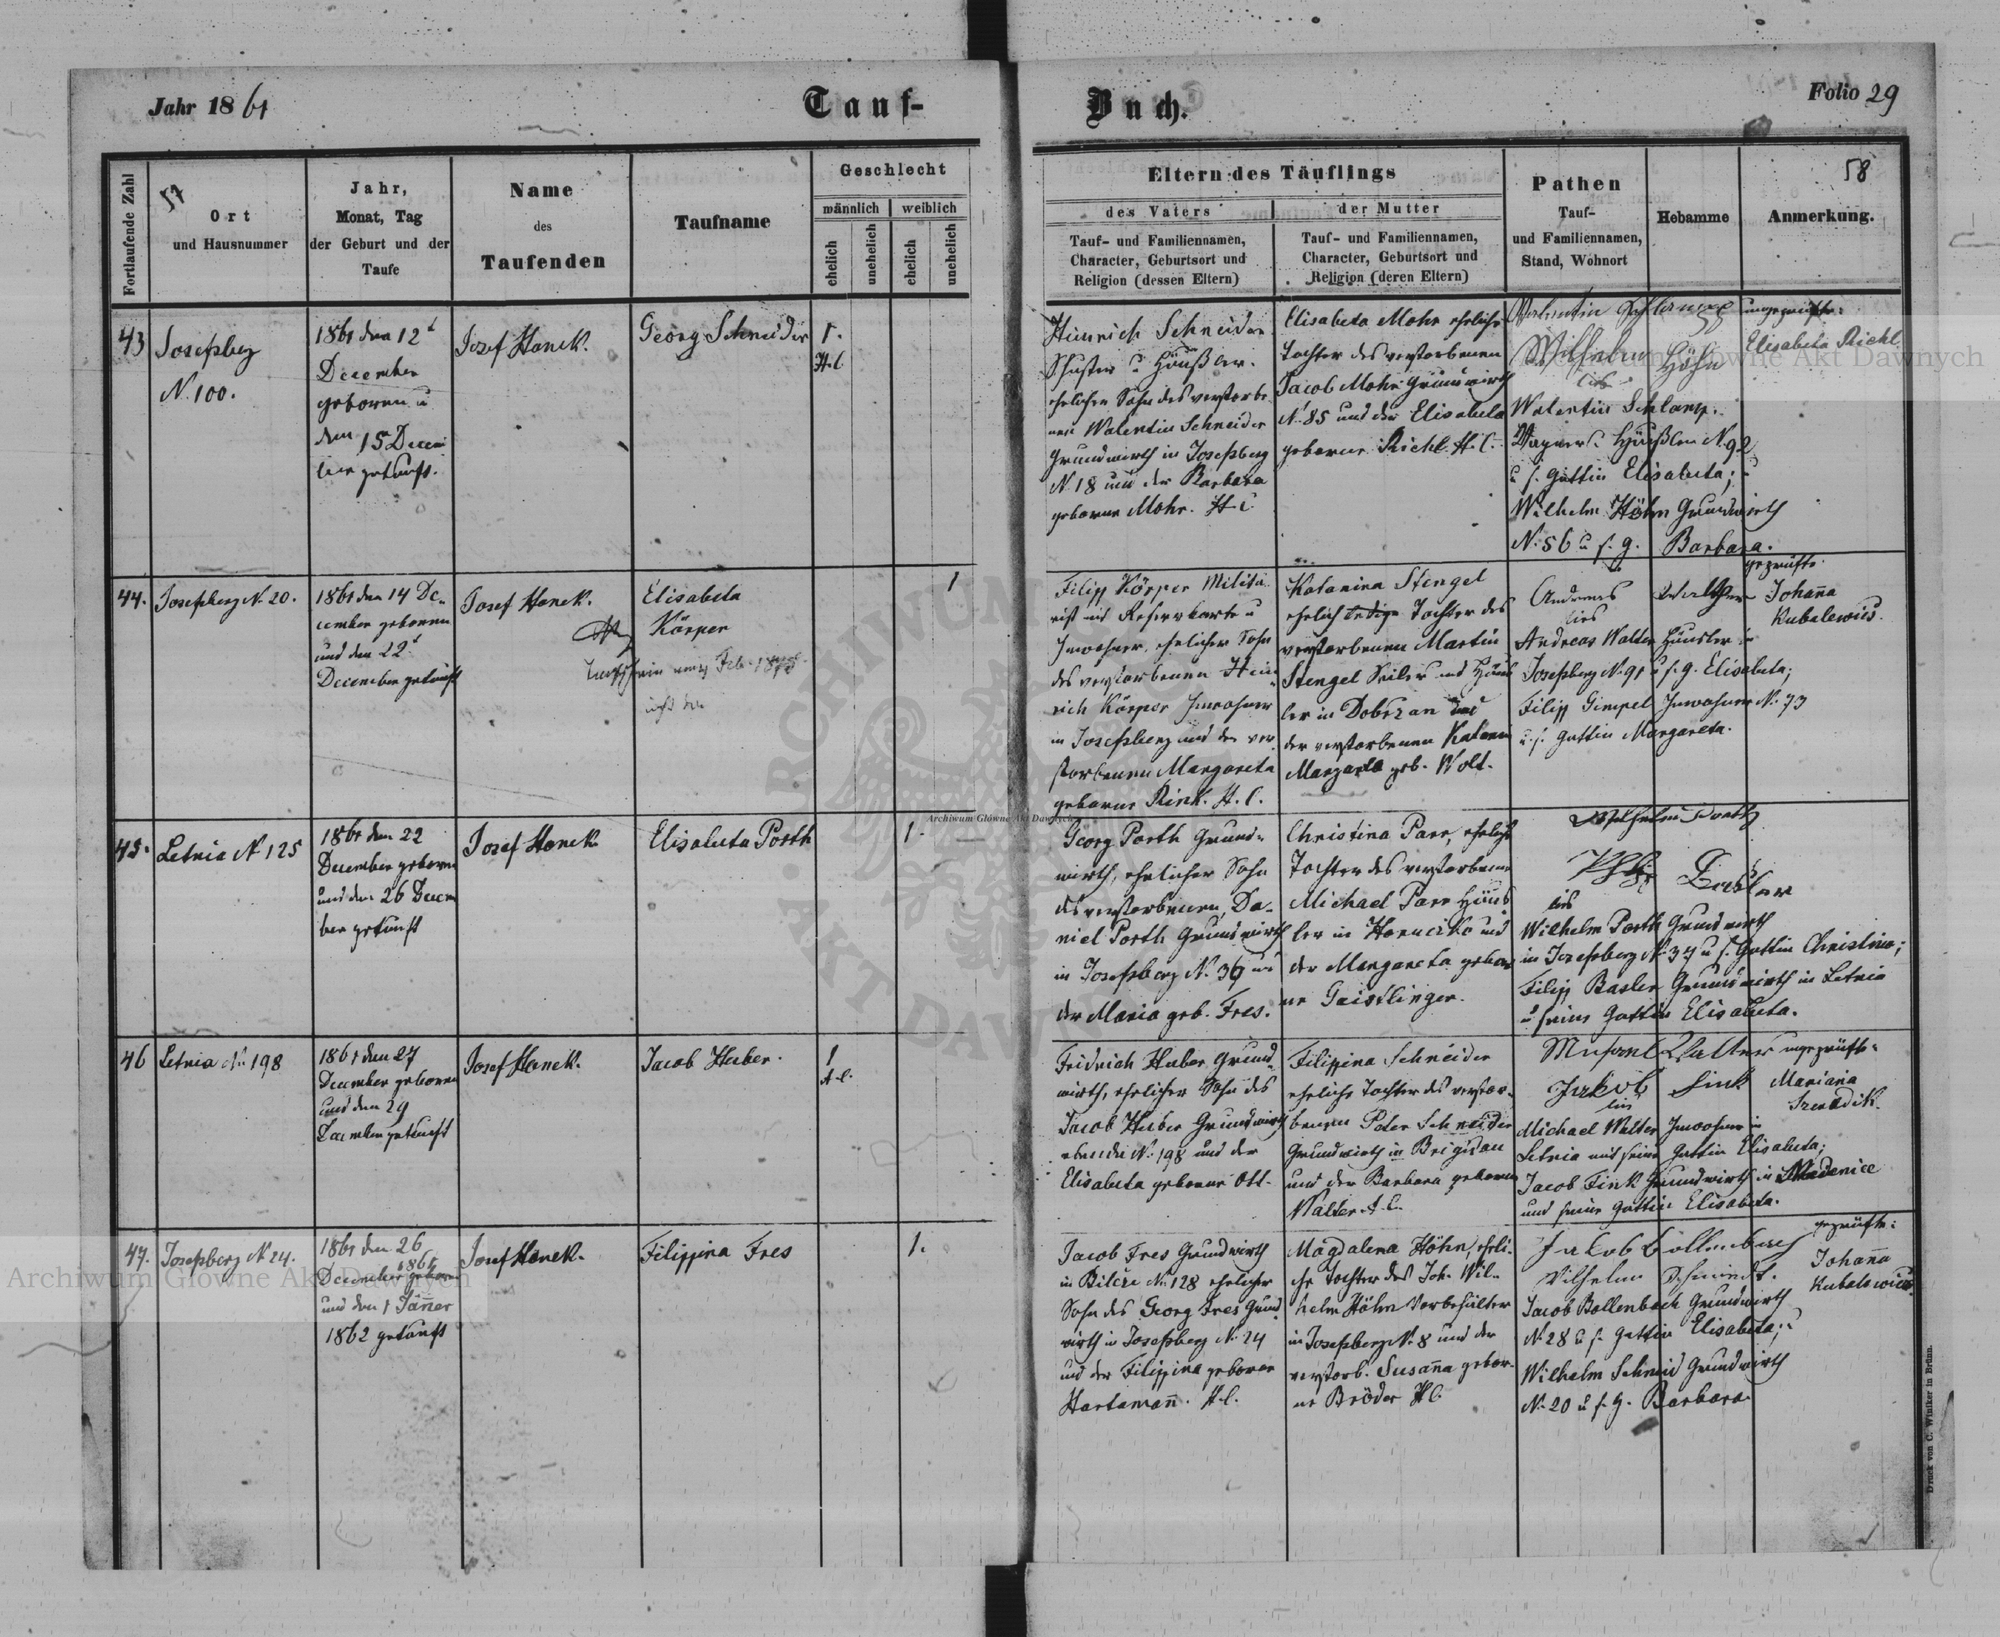 Jahr 1861
Tauf-
Buch.
Folio 29
Fortlaufende Zahl
57
Ort
und Hausnummer
Jahr,
Monat, Tag
der Geburt und der
Taufe
Name
des
Taufenden
Taufname
Geschlecht
männlich
weiblich
ehelich
unehelich
ehelich
unehelich
Eltern des Täuflings
des Vaters
Tauf- und Familiennamen,
Character, Geburtsort und
Religion (dessen Eltern)
der Mutter
Tauf- und Familiennamen,
Character, Geburtsort und
Religion (deren Eltern)
Pathen
Tauf-
und Familiennamen,
Stand, Wohnort
Hebamme
58
Anmerkung.
43
Josefsberg
N. 100.
1861 den 12t
December
geboren u
den 15 Decem
ber getauft.
Josef Hanek.
Georg Schneider
1.
H.C
Heinrich Schneider
Schuster u Häußler.
ehelicher Sohn des verstorbe
nen Valentin Schneider
Grundwirth in Josefsberg
N. 18 und der Barbara
geborne Mohr. H.C.
Elisabeta Mohr eheliche
Tochter des verstorbenen
Jacob Mohr Grundwirth
N. 85 und der Elisabeta
geborne Richl H.C.
Wilhelm Höhn
Valentin Schlamp.
Wagner u. Häußler N. 92
u s. Gattin Elisabeta; u
Wilhelm Höhn Grundwirth
N. 56 u s. g. Barbara.
ungeprüfte:
Elisabeta Richl
44.
Josefsberg N. 20.
1861 den 14 De-
cember geboren
und den 22t
December getauft
Josef Hanek.
Elisabeta
Körper
1
Filipp Körper
Inwohner, ehelicher Sohn
des verstorbenen Hein-
rich Körper Inwohner
in Josefsberg und der ver
storbenen Margareta
geborne Rink. H.C.
Katarina Stengel
ehelich ledige Tochter des
verstorbenen Martin
Stengel Seiler und Häus
ler in Dobrzan und
der verstorbenen
geb. Wolt.
Andreas Walther
Andreas Walter Häusler in
Josefsberg N. 91 u s. g. Elisabeta;
Filipp Gimpel Inwohner N. 73
u. s. Gattin Margareta.
geprüfte.
Johanna
Kubalewics.
45.
Letnia N 125
1861 den 22
December geboren
und den 26 Decem
ber getauft
Josef Hanek
Elisabeta Porth
1.
Georg Porth Grund-
wirth, ehelicher Sohn
des verstorbenen Da-
niel Porth Grundwirth
in Josefsberg N. 36 und
der Maria geb. Fres.
Christina Parr, ehelige
Tochter des verstorbenen
Michael Parr Häus
ler in Horucko und
der Margareta gebor
ne Geistlinger.
Wilhelm Porth
Wilhelm Porth Grundwirth
in Josefsberg N. 37 u s. Gattin Christina;
Filipp Basler Grundwirth in Letnia
u seine Gattin Elisabeta.
46
Letnia N. 198
1861 den 27
December geboren
und den 29
December getauft
Josef Hanek.
Jacob Huber.
1
A.C.
Fridrich Huber Grund-
wirth, ehelicher Sohn des
Jacob Huber Grundwirth
N. 198 und der
Elisabeta geborne Ott.
Filippina Schneider
eheliche Tochter des verstor-
benen Peter Schneider
Grundwirth in Brigidau
und der Barbara geborne
Walter A.C.
Jakob Fink
Michael Walter Inwohner in
Letnia und seine Gattin Elisabeta;
Jacob Fink Grundwirth in Medenice
und seine Gattin Elisabeta.
ungeprüfte:
Mariana
Szwadik.
47.
Josefsberg N 24.
1861 den 26
December 1861 geboren
und den 1 Jänner
1862 getauft
Josef Hanek.
Filippina Fres
1.
Jacob Fres Grundwirth
in Bilcze N. 128 ehelicher
Sohn des Georg Fres Grund
wirth in Josefsberg N. 24
und der Filippina geborne
Hartmann. H.C.
Magdalena Höhn, eheli-
che Tochter des Joh. Wil-
helm Höhn Vorbehälter
in Josefsberg N. 8 und der
verstorb. Susanna gebor-
ne Bröder H.C
Jakob Bollenbach
Wilhelm Schmied.
Jacob Bollenbach Grundwirth
N. 28 u s. Gattin Elisabeta; u
Wilhelm Schmid Grundwirth
N. 20 u s. g. Barbara
geprüfte:
Johanna
Kubalewics
Druck von C. Winiker in Brünn.
Archiwum Główne Akt Dawnych